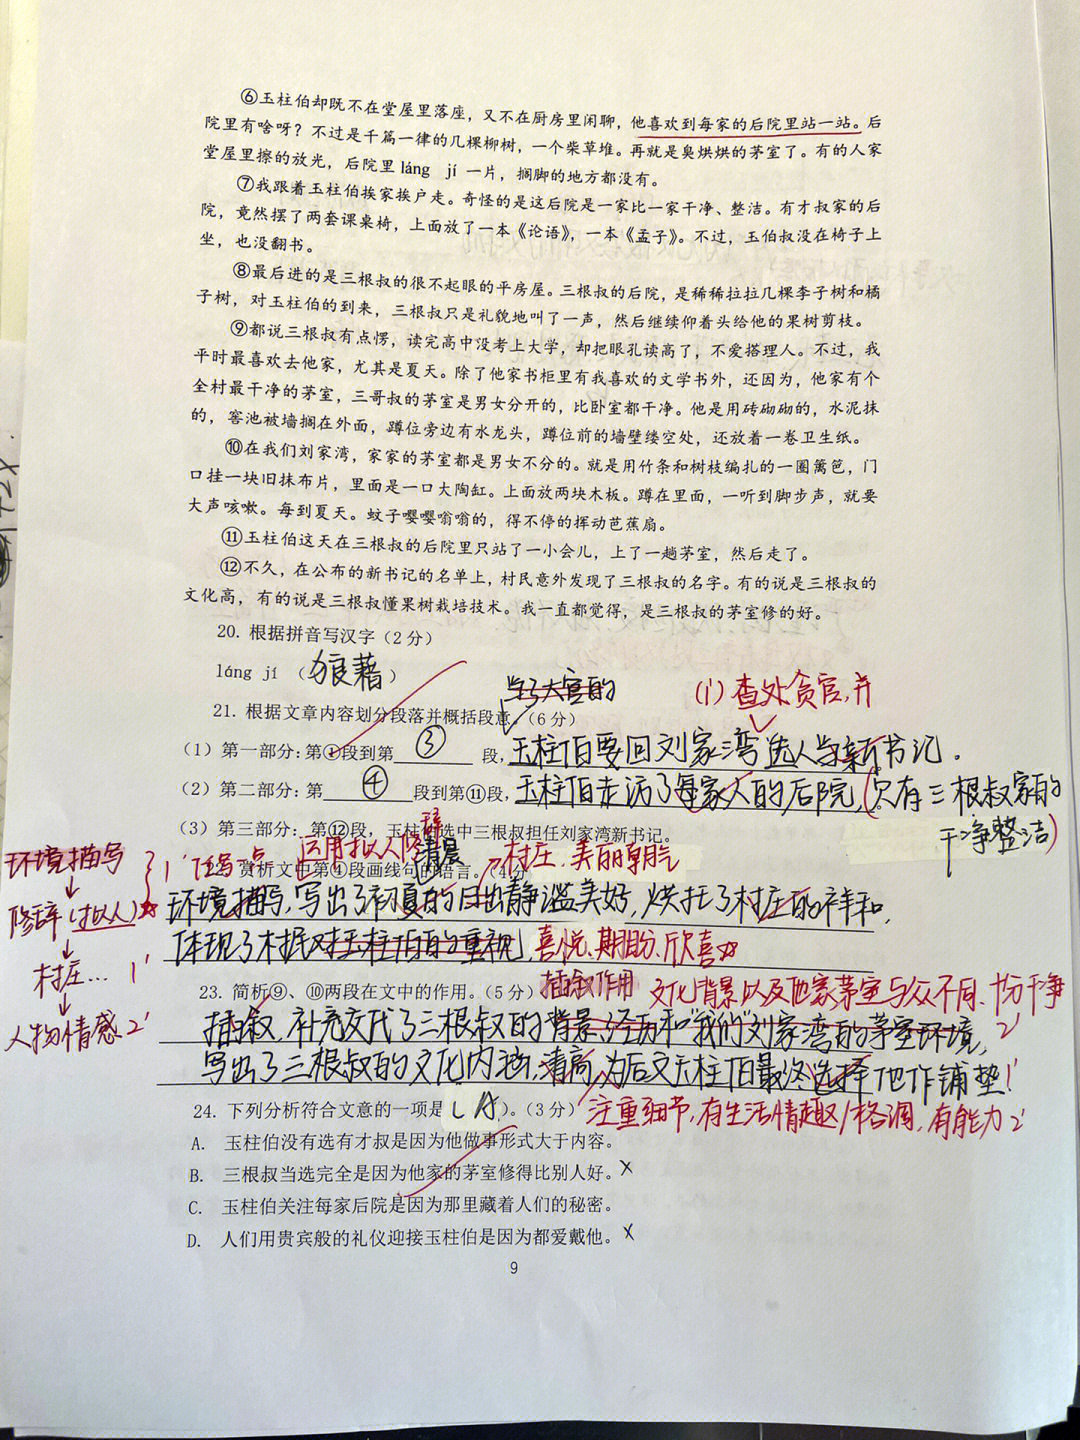 ⑥玉柱伯却既不在堂屋里落座，又不在厨房里闲聊，他喜欢到每家的后院里站一站。后
院里有啥呀？不过是千篇一律的几棵柳树，一个柴草堆。再就是臭烘烘的茅室了。有的人家
堂屋里擦的放光，后院里 láng jí 一片，搁脚的地方都没有。
⑦我跟着玉柱伯挨家挨户走。奇怪的是这后院是一家比一家干净、整洁。有才叔家的后
院，竟然摆了两套课桌椅，上面放了一本《论语》，一本《孟子》。不过，玉伯叔没在椅子上
坐，也没翻书。
⑧最后进的是三根叔的很不起眼的平房屋。三根叔的后院，是稀稀拉拉几棵李子树和橘
子树，对玉柱伯的到来，三根叔只是礼貌地叫了一声，然后继续仰着头给他的果树剪枝。
⑨都说三根叔有点愣，读完高中没考上大学，却把眼孔读高了，不爱搭理人。不过，我
平时最喜欢去他家，尤其是夏天。除了他家书柜里有我喜欢的文学书外，还因为，他家有个
全村最干净的茅室，三哥叔的茅室是男女分开的，比卧室都干净。他是用砖砌砌的，水泥抹
的，窖池被墙搁在外面，蹲位旁边有水龙头，蹲位前的墙壁缕空处，还放着一卷卫生纸。
⑩在我们刘家湾，家家的茅室都是男女不分的。就是用竹条和树枝编扎的一圈篱笆，门
口挂一块旧抹布片，里面是一口大陶缸。上面放两块木板。蹲在里面，一听到脚步声，就要
大声咳嗽。每到夏天。蚊子嘤嘤嗡嗡的，得不停的挥动芭蕉扇。
⑪玉柱伯这天在三根叔的后院里只站了一小会儿，上了一趟茅室，然后走了。
⑫不久，在公布的新书记的名单上，村民意外发现了三根叔的名字。有的说是三根叔的
文化高，有的说是三根叔懂果树栽培技术。我一直都觉得，是三根叔的茅室修的好。
20. 根据拼音写汉字（2 分）
láng jí （狼藉）
当了大官的
(1) 查处贪官，并
21. 根据文章内容划分段落并概括段意。（6 分）
（1）第一部分：第①段到第 ③ 段，玉柱伯要回刘家湾选人当新书记。
（2）第二部分：第 ④ 段到第⑪段，玉柱伯走访了每家人的后院，(只有三根叔家的
干净整洁)
（3）第三部分：第⑫段，玉柱伯选中三根叔担任刘家湾新书记。
环境描写
修辞(拟人)
村庄… 1'
人物情感2'
运用拟人修辞
清晨
村庄 美丽朝气
22. 赏析文中第④段画线句的语言。（4分）
环境描写，写出了初夏的日出静谧美好，烘托了村庄的祥和，
体现了村民对玉柱伯的重视，喜悦、期盼、欣喜
23. 简析⑨、⑩两段在文中的作用。（5 分）插叙作用
文化背景以及他家茅室与众不同、十分干净
插叙，补充交代了三根叔的背景经历和“我们”刘家湾的茅室环境，2'
写出了三根叔的文化内涵，清高，为后文玉柱伯最终选择他作铺垫1'
注重细节，有生活情趣/格调，有能力2'
24. 下列分析符合文意的一项是（A）。（3 分）
A. 玉柱伯没有选有才叔是因为他做事形式大于内容。
B. 三根叔当选完全是因为他家的茅室修得比别人好。×
C. 玉柱伯关注每家后院是因为那里藏着人们的秘密。
D. 人们用贵宾般的礼仪迎接玉柱伯是因为都爱戴他。×
9